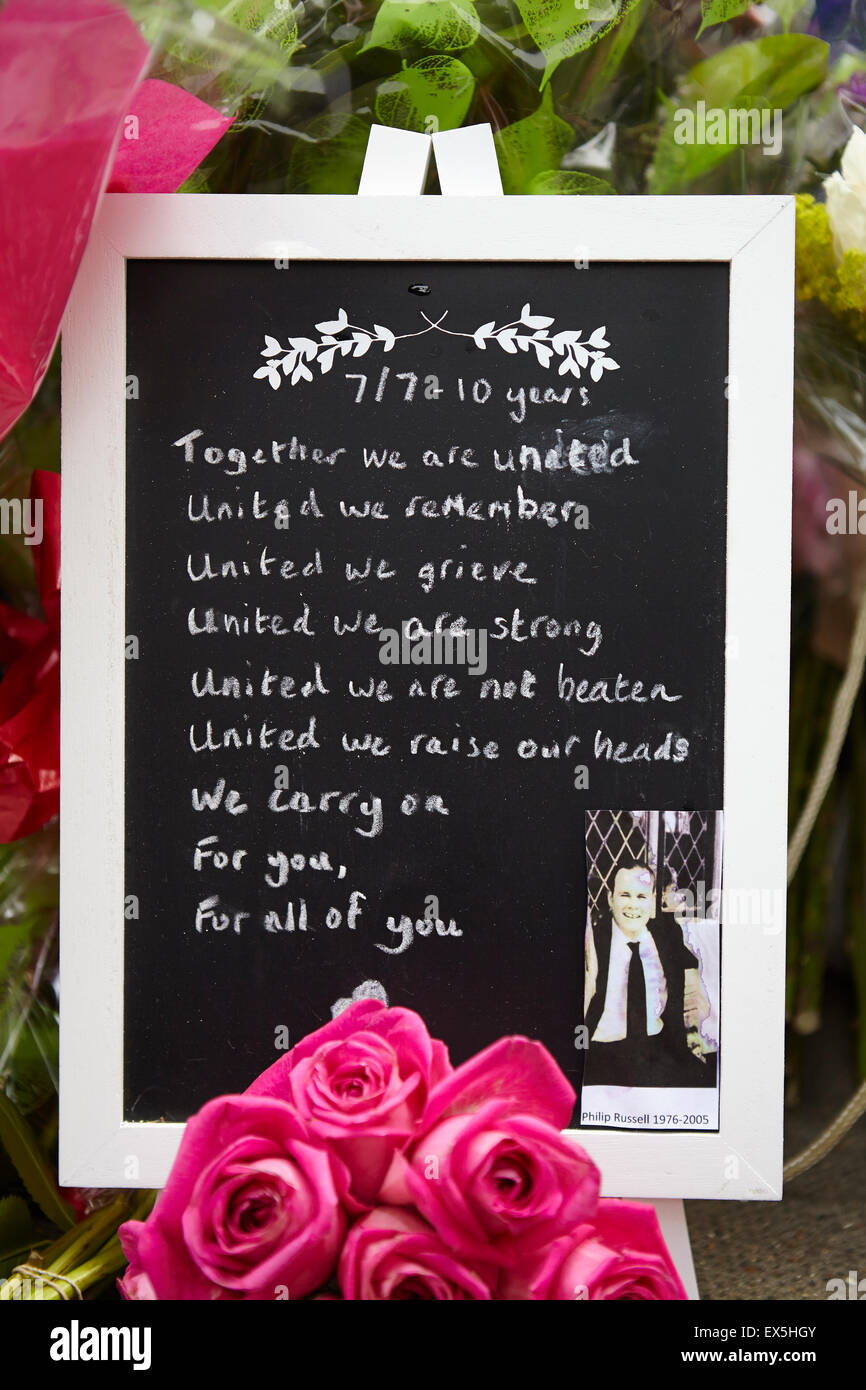 7/7 - 10 years
Together we are united
United we remember
United we grieve
United we are strong
United we are not beaten
United we raise our heads
We carry on
For you,
For all of you
Philip Russell 1976-2005
a
alamy stock photo
EX5HGY
www.alamy.com